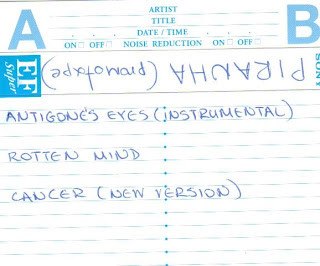 A
B
ARTIST
TITLE
DATE / TIME
ON □ OFF □ NOISE REDUCTION □ ON □ OFF
SONY
EF
Super
PIRANHA (promotape)
ANTIGONE'S EYES (INSTRUMENTAL)
ROTTEN MIND
CANCER (NEW VERSION)